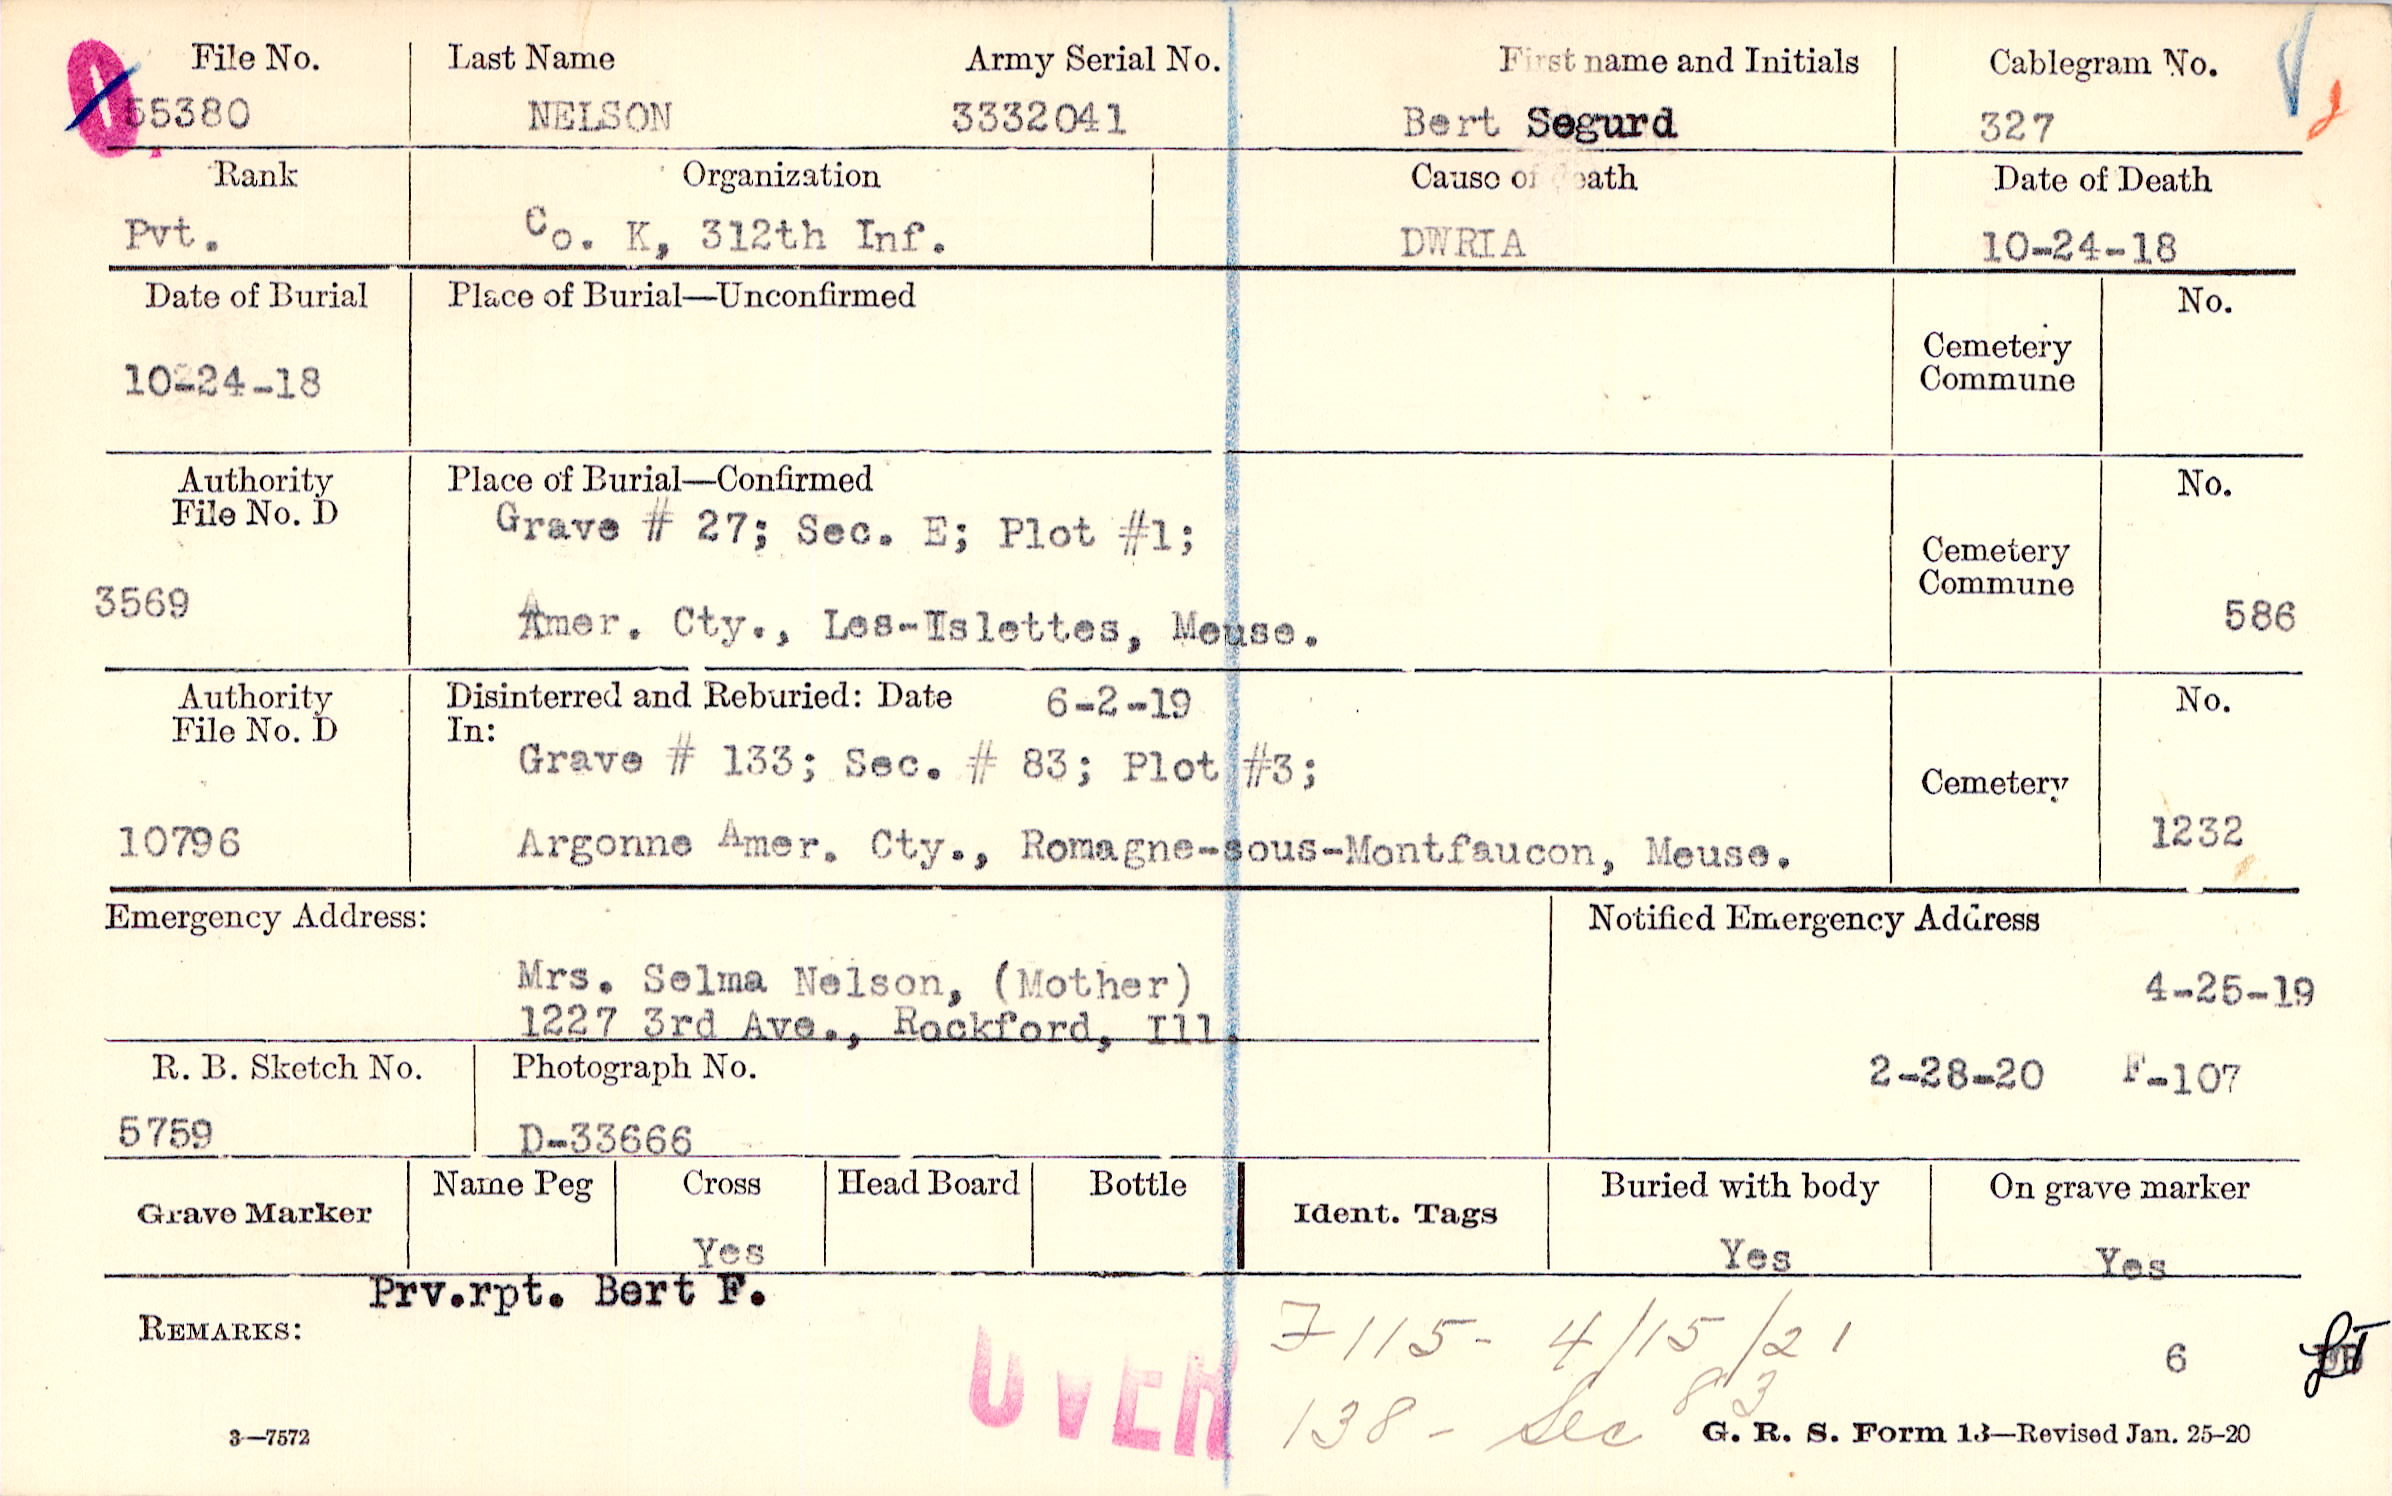 File No. Last Name Army Serial No. First name and Initials Cablegram No.
55380 NELSON 3332041 Bert Segurd 327
Rank Organization Cause of Death Date of Death
Pvt. Co. K, 312th Inf. DWRIA 10-24-18
Date of Burial Place of Burial—Unconfirmed No.
Cemetery
Commune
10-24-18
Authority Place of Burial—Confirmed No.
File No. D
Grave # 27; Sec. E; Plot #1;
Cemetery
Commune
3569 Amer. Cty., Les-Islettes, Meuse. 586
Authority Disinterred and Reburied: Date 6-2-19 No.
File No. D In:
Grave # 133; Sec. # 83; Plot #3;
Cemetery
10796 Argonne Amer. Cty., Romagne-sous-Montfaucon, Meuse. 1232
Emergency Address: Notified Emergency Address
Mrs. Selma Nelson, (Mother) 4-25-19
1227 3rd Ave., Rockford, Ill.
R. B. Sketch No. Photograph No. 2-28-20 F-107
5759 D-33666
Grave Marker Name Peg Cross Head Board Bottle Ident. Tags Buried with body On grave marker
Yes Yes Yes
Prv.rpt. Bert F.
REMARKS: F 115- 4/15/21 6
OVER
138 - Sec 83
3—7572 G. R. S. Form 13—Revised Jan. 25-20